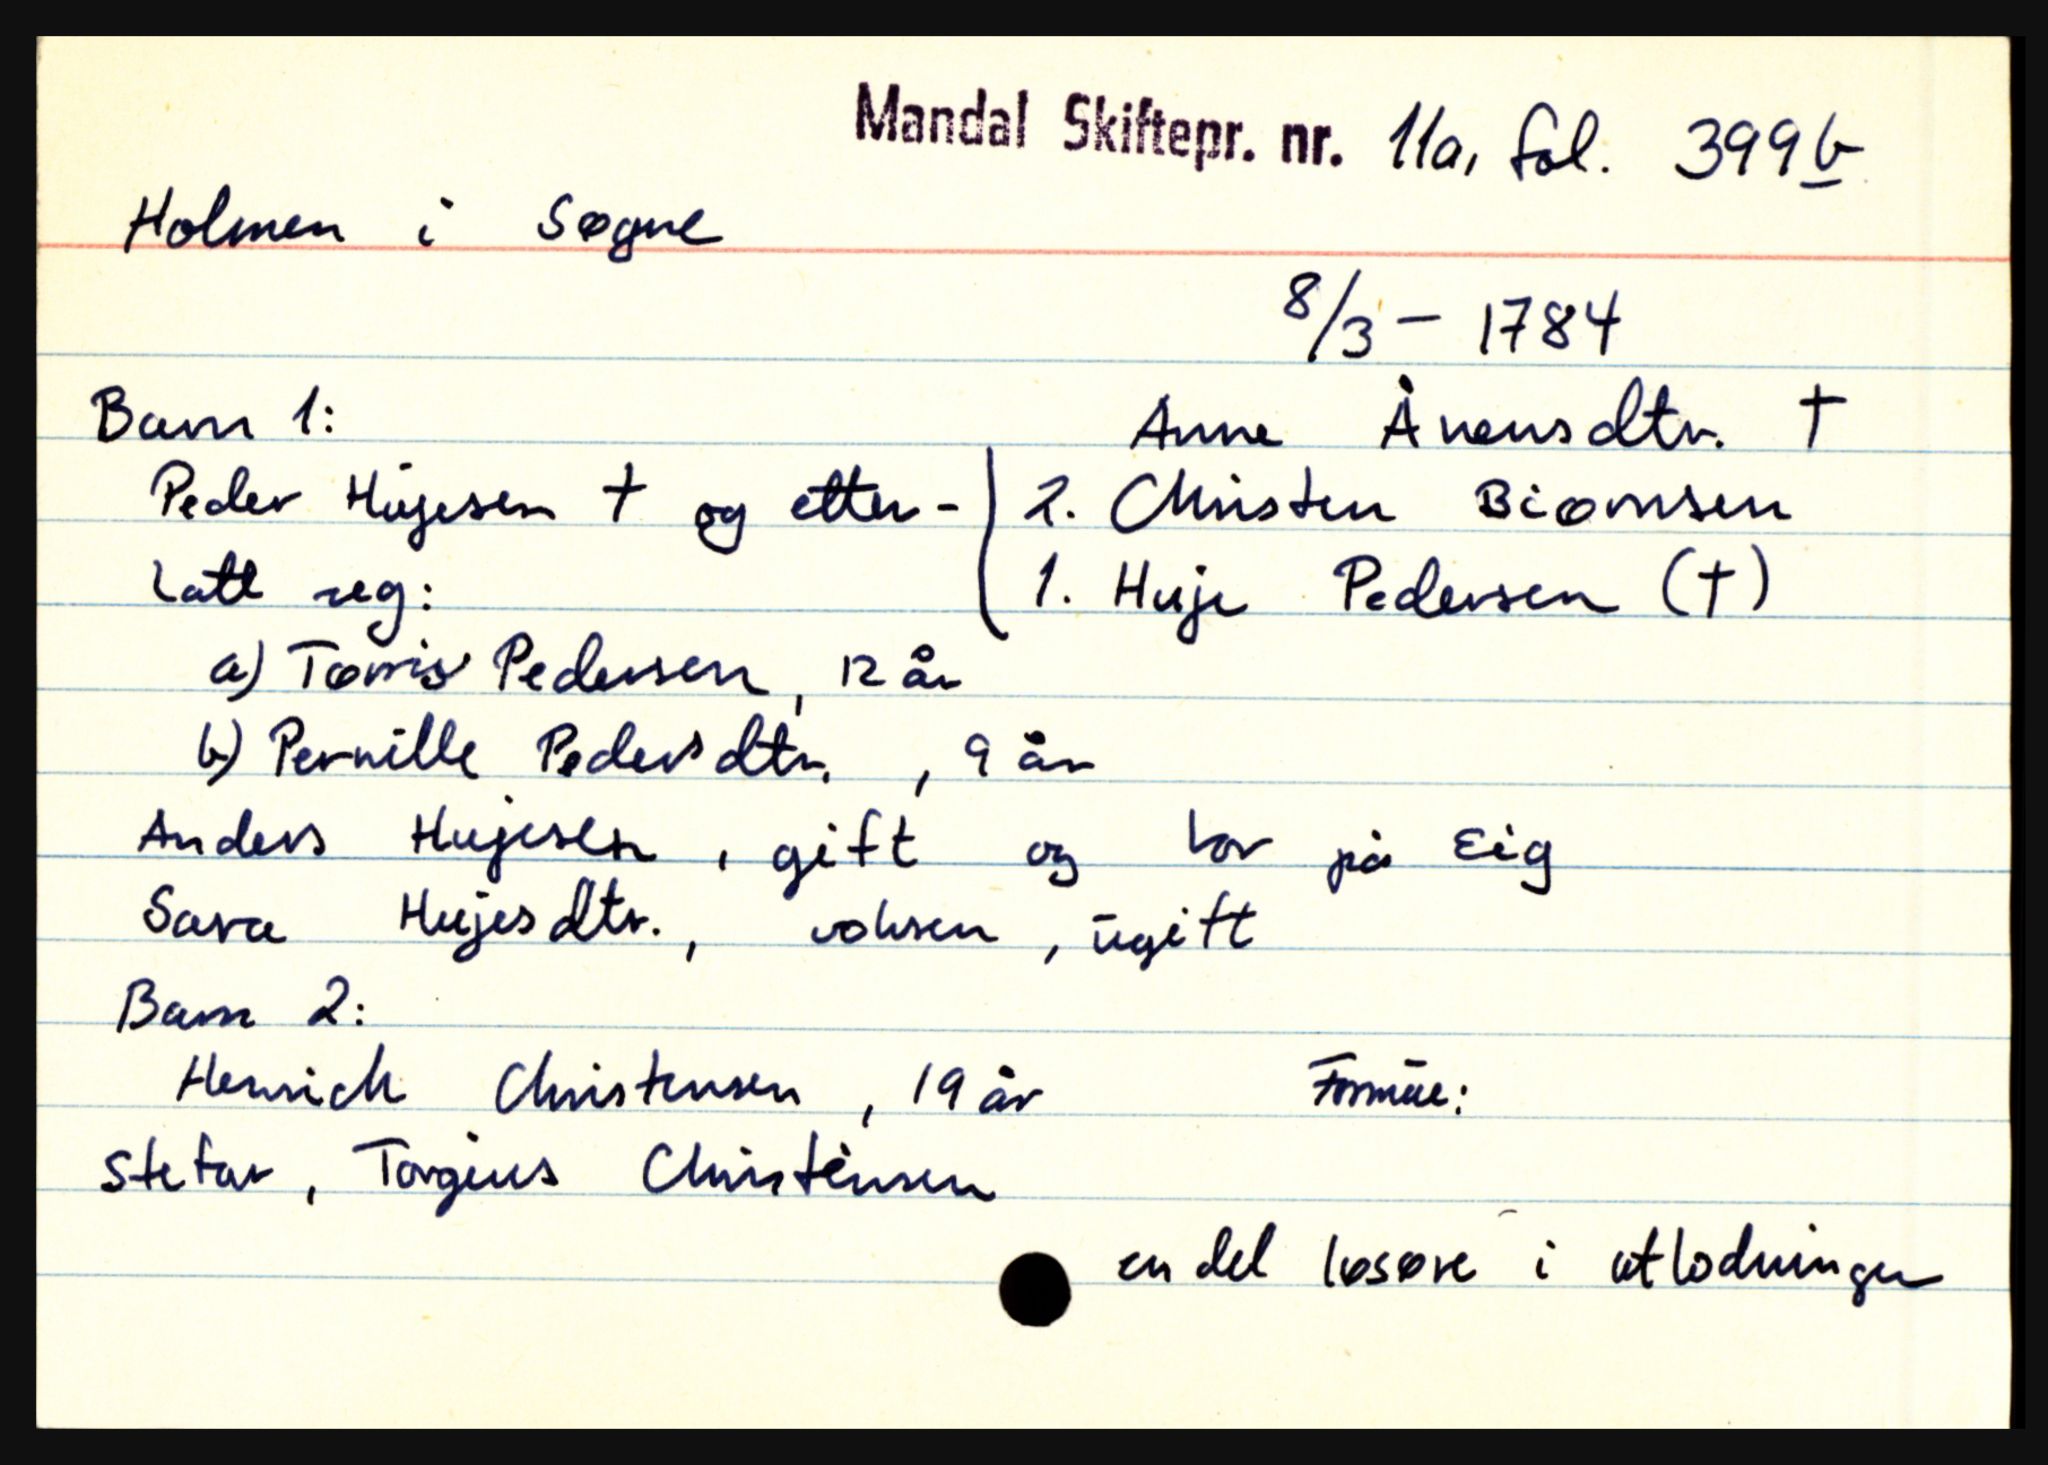 Mandal Skiftepr. nr. 11a, fol. 399b
Holmen i Søgne
8/3 - 1784
Barn 1: Anne Ånensdtr. †
Peder Hujesen † og etter- 2. Christen Biørnsen
latt seg: 1. Huje Pedersen (†)
a) Tørris Pedersen, 12 år
b) Pernille Pedersdtr., 9 år
Anders Hujesen, gift og bor på Eig
Sara Hujesdtr., voksen, ugift
Barn 2:
Henrich Christensen, 19 år Formue:
Stefar, Torgius Christensen
en del løsøre i utlodningen